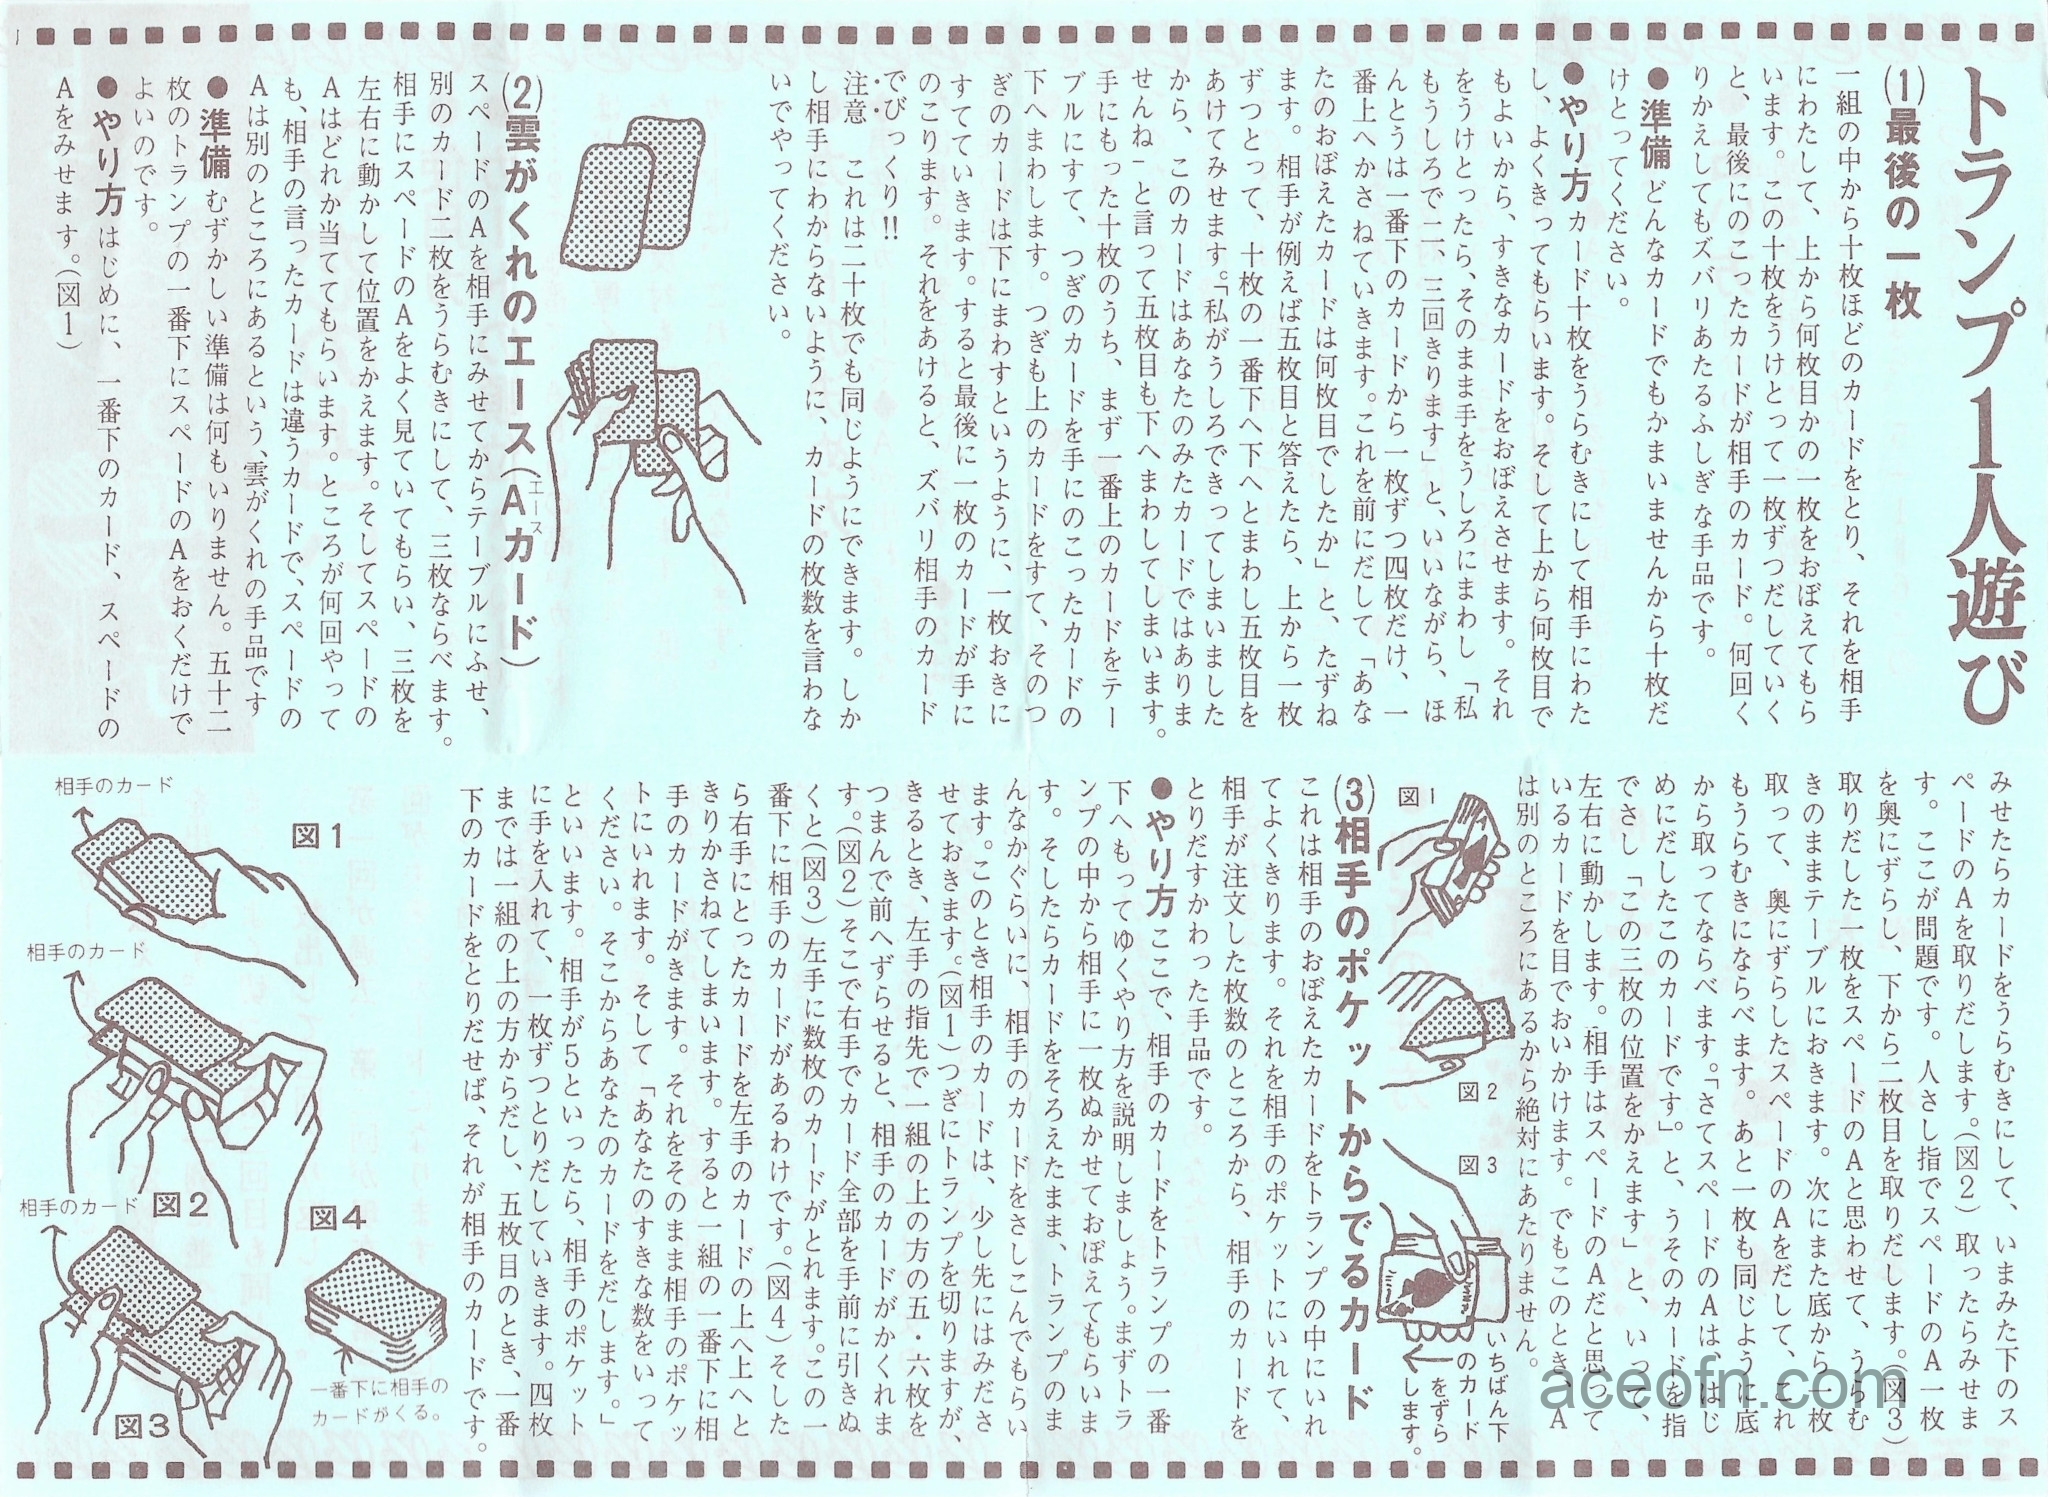 トランプ1人遊び
(1)最後の一枚
一組の中から十枚ほどのカードをとり、それを相手
にわたして、上から何枚目かの一枚をおぼえてもら
います。この十枚をうけとって一枚ずつだしていく
と、最後にのこったカードが相手のカード。何回く
りかえしてもズバリあたるふしぎな手品です。
●準備 どんなカードでもかまいませんから十枚だ
けとってください。
●やり方 カード十枚をうらむきにして相手にわた
し、よくきってもらいます。そして上から何枚目で
もよいから、すきなカードをおぼえさせます。それ
をうけとったら、そのまま手をうしろにまわし「私
もうしろで二、三回きります」と、いいながら、ほ
んとうは一番下のカードから一枚ずつ四枚だけ、一
番上へかさねていきます。これを前にだして「あな
たのおぼえたカードは何枚目でしたか」と、たずね
ます。相手が例えば五枚目と答えたら、上から一枚
ずつとって、十枚の一番下へ下へとまわし五枚目を
あけてみせます。「私がうしろできってしまいました
から、このカードはあなたのみたカードではありま
せんね」と言って五枚目も下へまわしてしまいます。
手にもった十枚のうち、まず一番上のカードをテー
ブルにすて、つぎのカードを手にのこったカードの
下へまわします。つぎも上のカードをすて、そのつ
ぎのカードは下にまわすというように、一枚おきに
すてていきます。すると最後に一枚のカードが手に
のこります。それをあけると、ズバリ相手のカード
でびっくり!!
注意 これは二十枚でも同じようにできます。しか
し相手にわからないように、カードの枚数を言わな
いでやってください。
(2)雲がくれのエース(Aカード)
エース
スペードのAを相手にみせてからテーブルにふせ、
別のカード二枚をうらむきにして、三枚ならべます。
相手にスペードのAをよく見ていてもらい、三枚を
左右に動かして位置をかえます。そしてスペードの
Aはどれか当ててもらいます。ところが何回やって
も、相手の言ったカードは違うカードで、スペードの
Aは別のところにあるという、雲がくれの手品です
●準備 むずかしい準備は何もいりません。五十二
枚のトランプの一番下にスペードのAをおくだけで
よいのです。
●やり方 はじめに、一番下のカード、スペードの
Aをみせます。(図1)
みせたらカードをうらむきにして、いまみた下のス
ペードのAを取りだします。(図2)取ったらみせま
す。ここが問題です。人さし指でスペードのA一枚
を奥にずらし、下から二枚目を取りだします。(図3)
取りだした一枚をスペードのAと思わせて、うらむ
きのままテーブルにおきます。次にまた底から一枚
取って、奥にずらしたスペードのAをだして、これ
もうらむきにならべます。あと一枚も同じように底
から取ってならべます。「さてスペードのAは、はじ
めにだしたこのカードです」。と、うそのカードを指
でさし「この三枚の位置をかえます」と、いって、
左右に動かします。相手はスペードのAだと思って
いるカードを目でおいかけます。でもこのときA
は別のところにあるから絶対にあたりません。
図1
図2
図3
いちばん下
のカード
をずら
します。
(3)相手のポケットからでるカード
これは相手のおぼえたカードをトランプの中にいれ
てよくきります。それを相手のポケットにいれて、
相手が注文した枚数のところから、相手のカードを
とりだすかわった手品です。
●やり方 ここで、相手のカードをトランプの一番
下へもってゆくやり方を説明しましょう。まずトラ
ンプの中から相手に一枚ぬかせておぼえてもらいま
す。そしたらカードをそろえたまま、トランプのま
んなかぐらいに、相手のカードをさしこんでもらい
ます。このとき相手のカードは、少し先にはみださ
せておきます。(図1)つぎにトランプを切りますが、
きるとき、左手の指先で一組の上の方の五・六枚を
つまんで前へずらせると、相手のカードがかくれま
す。(図2)そこで右手でカード全部を手前に引きぬ
くと(図3)左手に数枚のカードがとれます。この一
番下に相手のカードがあるわけです。(図4)そした
ら右手にとったカードを左手のカードの上へ上へと
きりかさねてしまいます。すると一組の一番下に相
手のカードがきます。それをそのまま相手のポケッ
トにいれます。そして「あなたのすきな数をいって
ください。そこからあなたのカードをだします。」
といいます。相手が5といったら、相手のポケット
に手を入れて、一枚ずつとりだしていきます。四枚
までは一組の上の方からだし、五枚目のとき、一番
下のカードをとりだせば、それが相手のカードです。
相手のカード
図1
相手のカード
図2
相手のカード
図3
図4
一番下に相手の
カードがくる。
aceofn.com